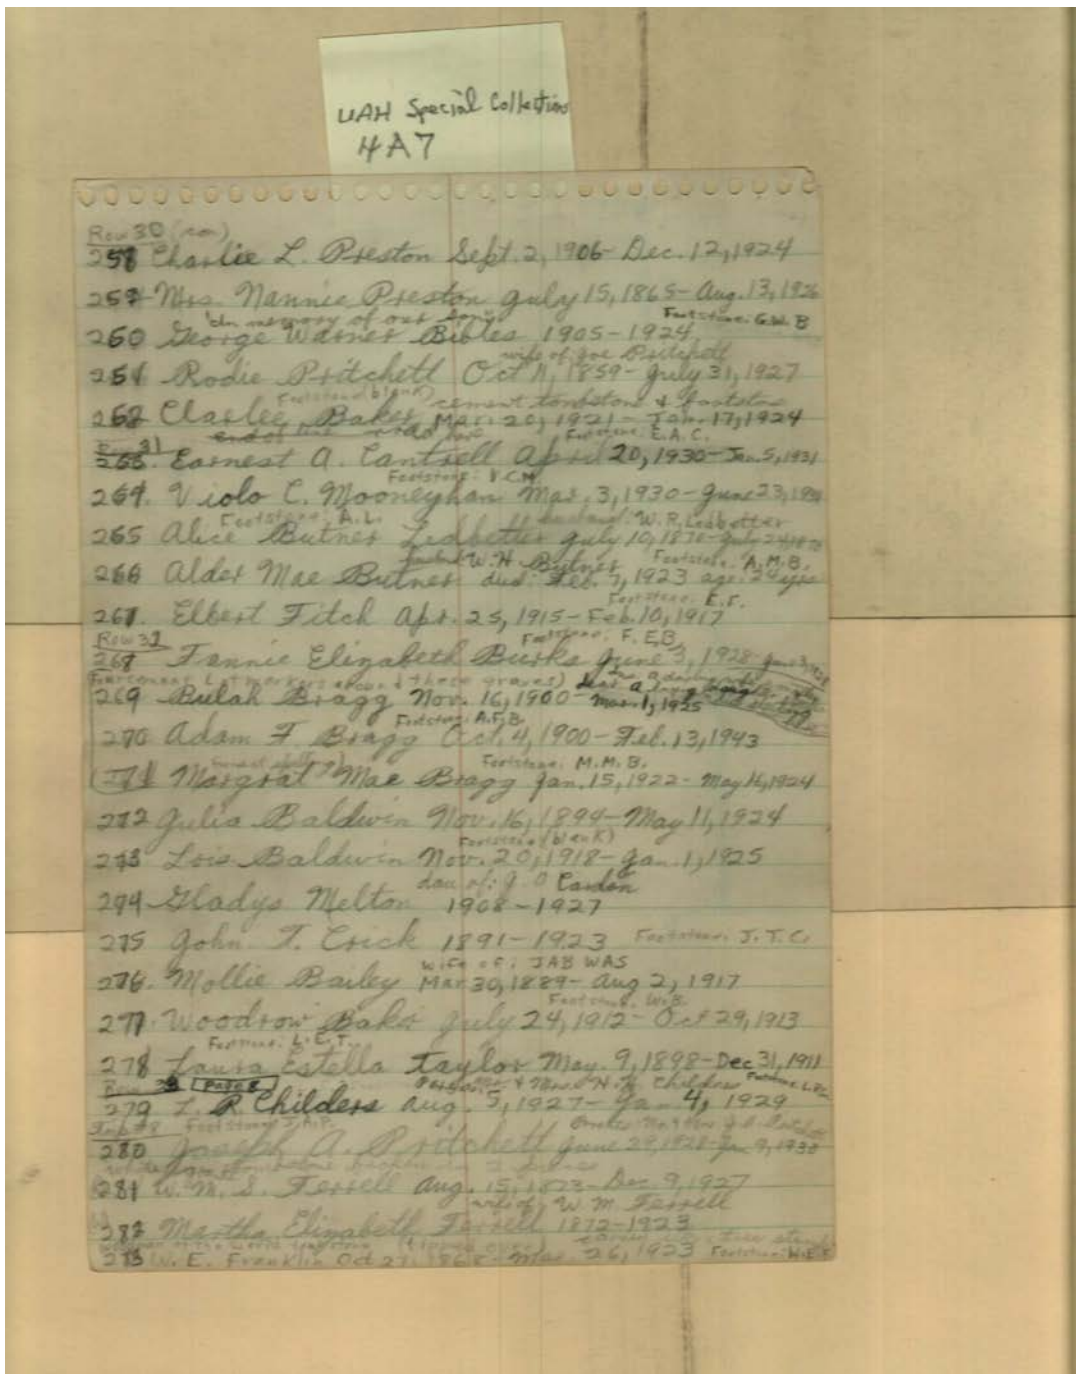 UAH Special Collection
4A7
Row 30
258 Charlie L. Preston Sept. 2, 1906- Dec. 12, 1924
259 Mrs. Nannie Preston July 15, 1865- Aug. 13, 1926
"In memory of our son" Footstone: G.W.B
260 George Warner Bibles 1905-1924
wife of Joe Pritchett
261 Rodie Pritchett Oct 11, 1859- July 31, 1927
Footstone (blank) cement tombstone & footstone
262 Charlee Baker Mar. 20, 1921- Jan. 17, 1924
Footstone: E.A.C.
31
Earnest A. Cantrell April 20, 1930- Jan. 5, 1931
Footstone: V.C.M.
264. Viola C. Mooneyhan Mar. 3, 1930- June 23,
Footstone: A.L. husband: W.R. Ledbetter
265 Alice Butner Ledbetter July 10,
husband W.H. Butner Footstone: A.M.B.
266 Alder Mae Butner died: Feb. 7, 1923 age: 24 yrs
Footstone: E.F.
267. Elbert Fitch Apr. 25, 1915- Feb. 10, 1917
Row 32 Footstone: F.E.B.
268 Fannie Elizabeth Burks June 3, 1928-
Four cement Lot markers around these graves)
269 Bulah Bragg Nov. 16, 1900- Mar. 1, 1925
Footstone: A.F.B.
270 Adam F. Bragg Oct. 4, 1900- Feb. 13, 1943
Footstone: M.M.B.
271 Margrat Mae Bragg Jan. 15, 1922- May 16, 1924
272 Julia Baldwin Nov. 16, 1899- May 11, 1924
Footstone (blank)
273 Lois Baldwin Nov. 20, 1918- Jan. 1, 1925
dau of: J.O Cardon
274 Gladys Melton 1908-1927
275 John T. Crick 1891-1923 Footstone: J.T.C.
wife of: JAB WAS
276. Mollie Bailey Mar 30, 1889- Aug 2, 1917
Footstone: W.B.
277. Woodrow Baker July 24, 1912- Oct 29, 1913
Footstone: L.E.T.
278 Laura Estella Taylor May. 9, 1898- Dec 31, 1911
Row Page 8 & Mrs. H. Childers Footstone:
279 L R Childers Aug. 5, 1927- Jan 4, 1929
Footstone: J.A.P.
280 Joseph A. Pritchett June 29, 1928- Jan 9, 1930
281 W. M. S. Ferrell Aug. 15, 1873- Dec. 9, 1927
wife of: W M Ferrell
282 Martha Elizabeth Ferrell 1872-1923
283 W. E. Franklin Oct 27, 1868- Mar. 26, 1923 Footstone: W.E.F.